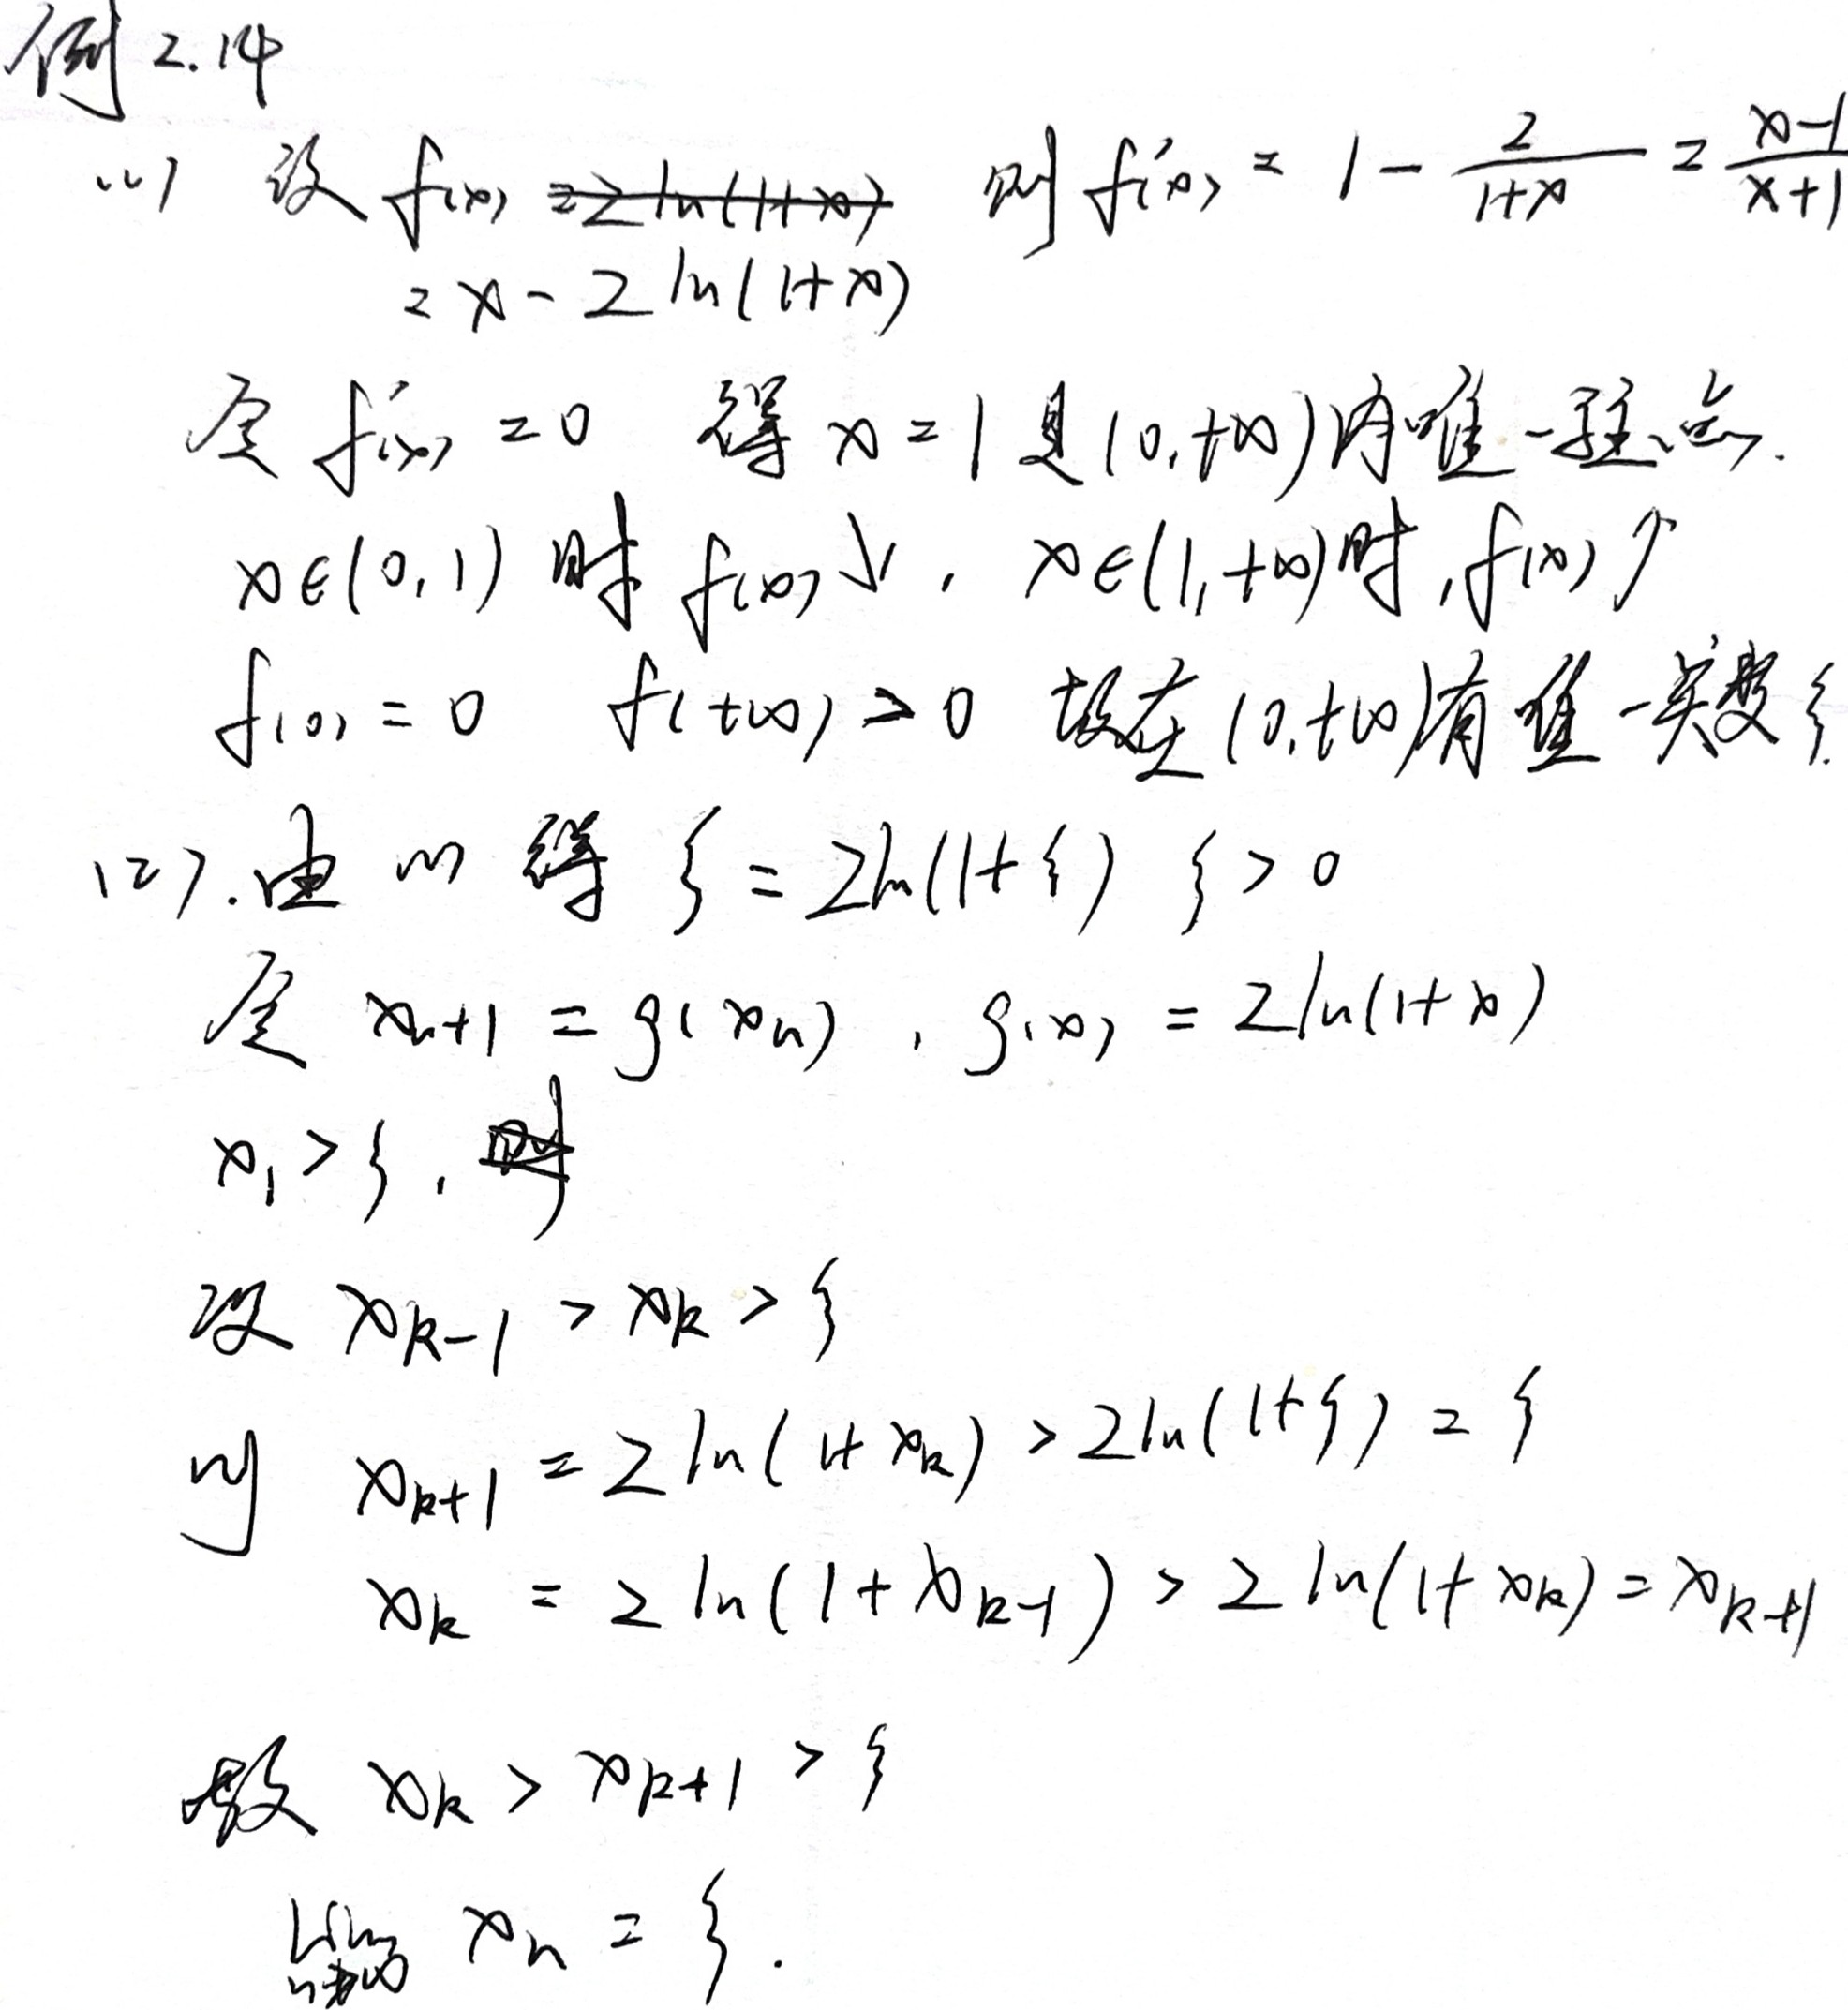 例 2.14
(1) 设 f(x) = x - 2 ln(1+x) 则 f'(x) = 1 - 2/(1+x) = (x-1)/(x+1)
令 f'(x) = 0 得 x = 1 是 (0,+∞) 内唯一驻点.
x∈(0,1) 时 f(x)↓, x∈(1,+∞) 时, f(x)↑
f(0) = 0 f(+∞) > 0 故在 (0,+∞) 有唯一实数 ξ.
(2). 由 (1) 得 ξ = 2ln(1+ξ) ξ > 0
令 xₙ₊₁ = g(xₙ), g(x) = 2ln(1+x)
x₁ > ξ,
设 xₖ₋₁ > xₖ > ξ
则 xₖ₊₁ = 2 ln(1+xₖ) > 2ln(1+ξ) = ξ
xₖ = 2 ln(1+xₖ₋₁) > 2 ln(1+xₖ) = xₖ₊₁
故 xₖ > xₖ₊₁ > ξ
lim n→∞ xₙ = ξ.